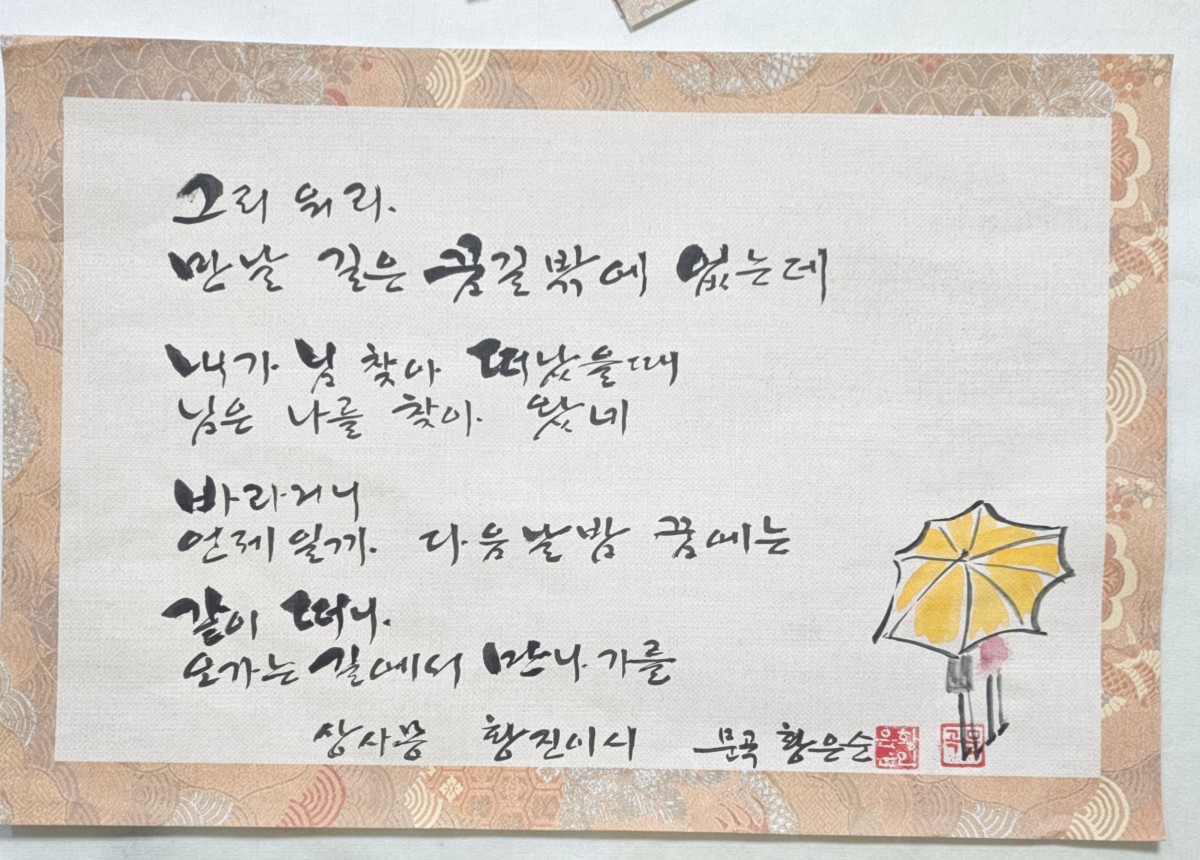 그리워라.
만날 길은 꿈길밖에 없는데
내가 님 찾아 떠났을때
님은 나를 찾아 왔네
바라거니
언제일까. 다음날밤 꿈에는
같이 떠나.
오가는 길에서 만나기를
상사몽 황진이시 문곡 황은순